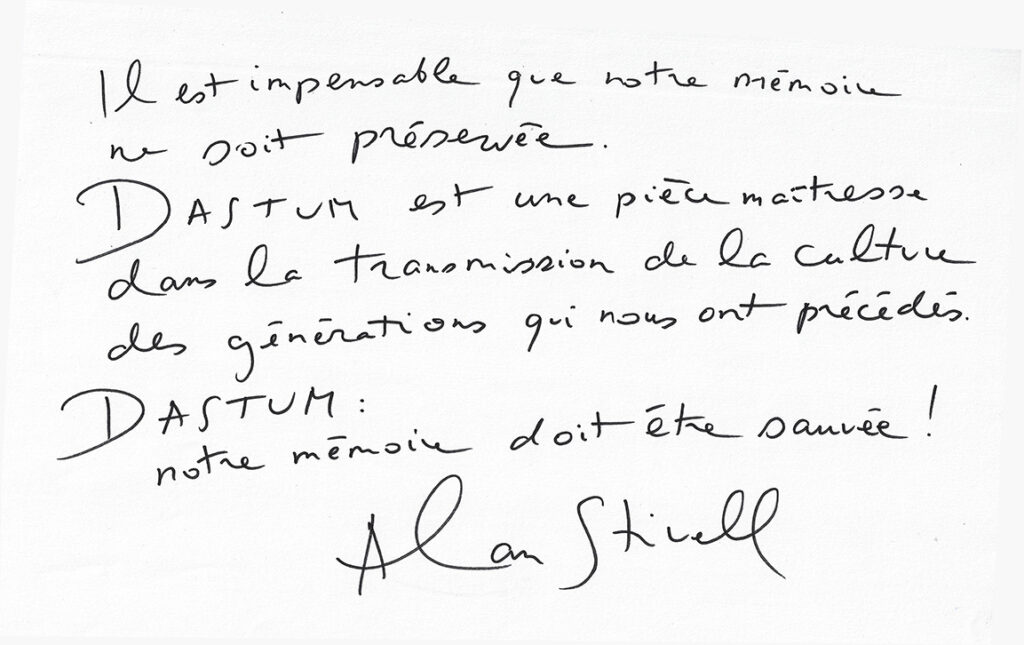 Il est impensable que notre mémoire
ne soit préservée.
DASTUM est une pièce maîtresse
dans la transmission de la culture
des générations qui nous ont précédés.
DASTUM :
notre mémoire doit être sauvée !
Alan Stivell